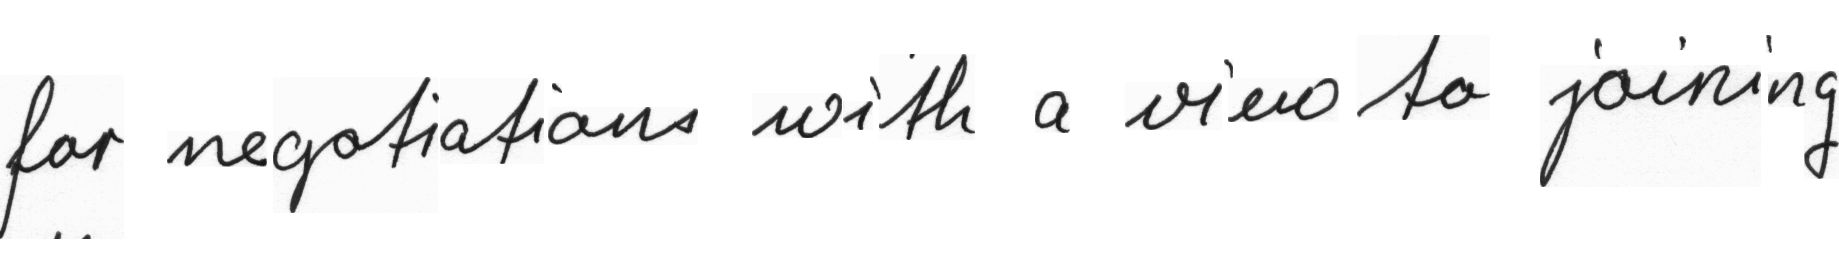 for negotiations with a view to joining